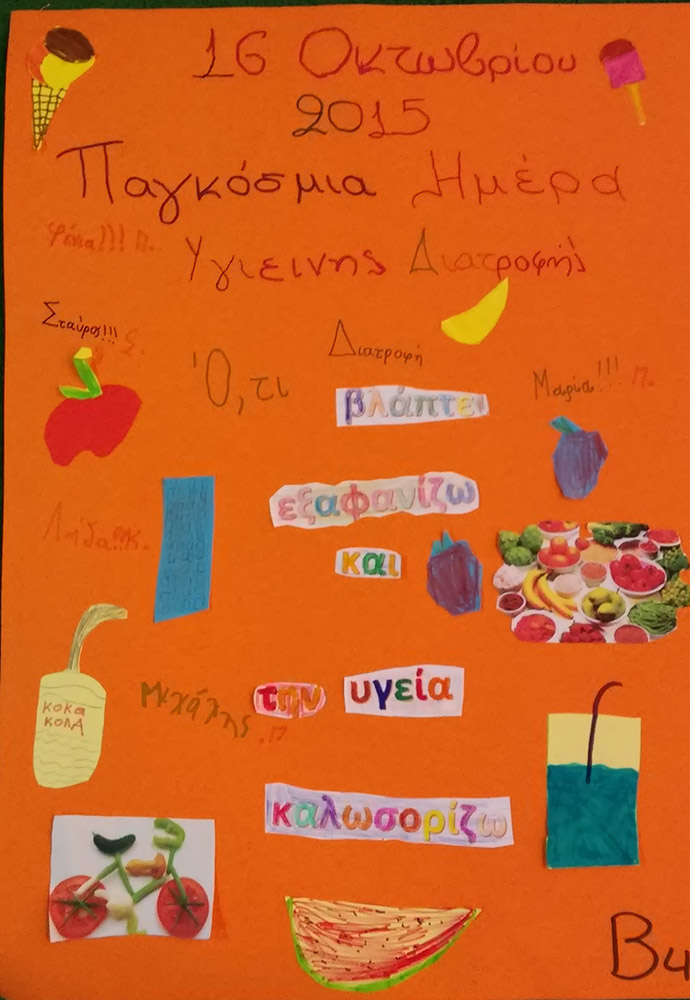 16 Οκτωβρίου
2015
Παγκόσμια Ημέρα
Υγιεινης Διατροφής
Σταύρος!!! Σ.
Διατροφή
Ό,τι
βλάπτει
Μαρία!!! Π.
εξαφανίζω
και
Μιχάλης .Π
την υγεία
κοκα
κολα
καλωσορίζω
Βч